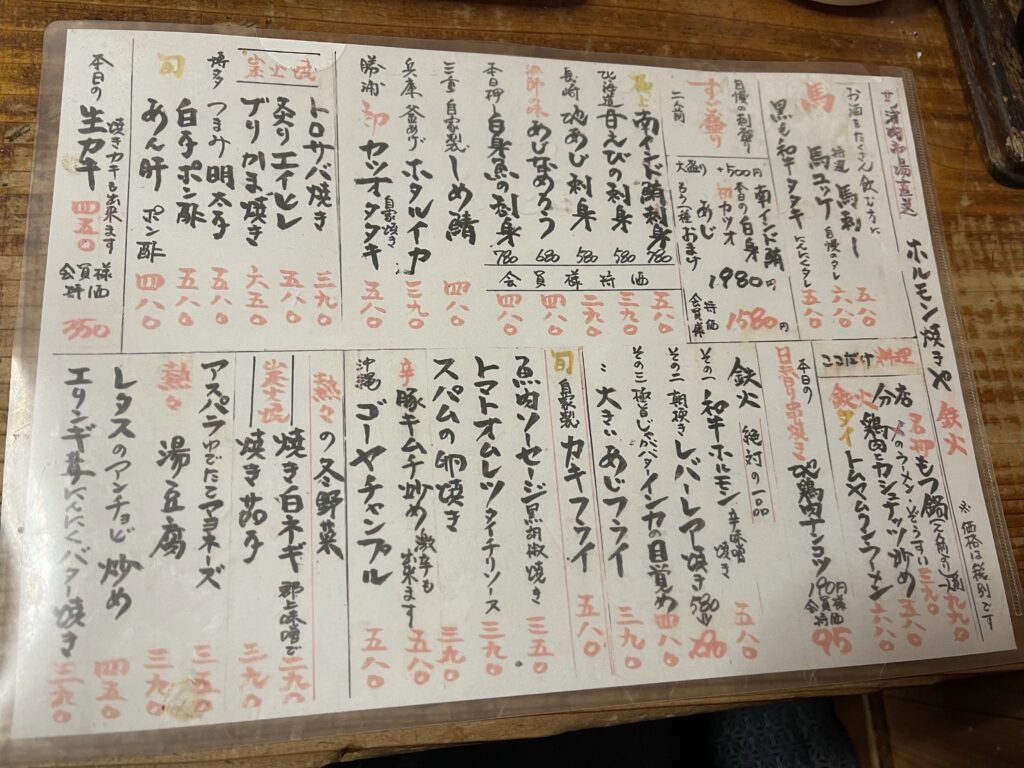 芝浦市場直送
ホルモン焼きや 鉄火
※価格は税別です
お酒をたくさん飲む方に
馬 特選 馬刺し 五八〇
馬ユッケ 自慢のタレ 六八〇
黒毛和牛タタキ にんにくダレ 五八〇
自慢の刺盛り
すご盛り
二人前
大盛り +500円
南インド鮪
本日の白身
初カツオ
あじ
もう一種おまけ
1,980円
会員様特価 1580円
極上 南インド鮪刺身 780 五八〇
北海道 甘えびの刺身 580 三九〇
長崎 地あじ刺身 580 二九〇
漁師の味 あじなめろう 680 四八〇
本日の 白身魚の刺身 780 四八〇
会員様特価
三重 自家製 しめ鯖 四八〇
兵庫 釜あげ ホタルイカ 三九〇
勝浦 初 カツオタタキ 自家焼き 五八〇
トロサバ焼き 三九〇
炙りエイヒレ 五八〇
ブリかま焼き 六五〇
博多 つまみ明太子 五八〇
白子ポン酢 五八〇
旬 あん肝 ポン酢 四八〇
本日の 生カキ 四五〇
焼きカキも出来ます
会員様特価 350
ここだけ料理
もつ鍋
鶏肉とカシュナッツ炒め 五八〇
鉄火 タイ トムヤムクンラーメン 六八〇
日替り串焼き
本日の 地鶏ナンコツ
会員様特価 95
鉄火 絶対の一品
その一 和牛ホルモン 辛味噌焼き 五八〇
その二 朝挽き レバーレア焼き 580
その三 極旨じゃがバター インカの目覚め 三九〇
〃 大きいあじフライ
旬 自家製 カキフライ 五八〇
魚肉ソーセージ黒胡椒焼き 三五〇
トマトオムレツタイチリソース 三九〇
スパムの卵焼き 三九〇
辛 豚キムチ炒め 激辛も出来ます 五八〇
沖縄 ゴーヤチャンプル 五八〇
熱々の冬野菜
焼き白ネギ 郡上味噌で 二九〇
焼き茄子 三九〇
アスパラゆでたこマヨネーズ 三五〇
熱々 湯豆腐 三九〇
レタスのアンチョビ炒め 四五〇
エリンギ茸にんにくバター焼き 三九〇